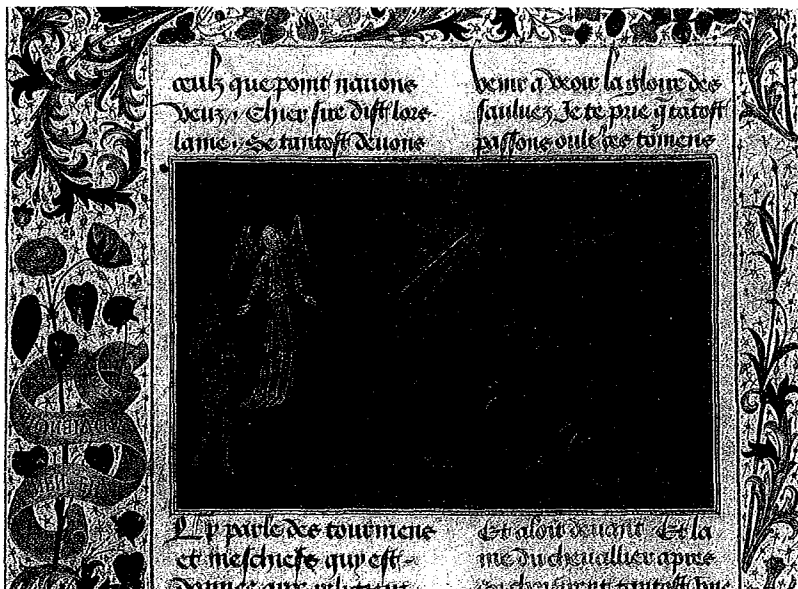 ceulz que point nauons
veuz, Chier sire dist lors
lame, Se tantost deuons
venir a veoir la gloire des
sauluez Je te prie q̃ tãtost
passons oultre ces tormens
Cy parle des tourmens
et meschiefs quy est
Et aloit deuant Et la
me du cheuallier apres